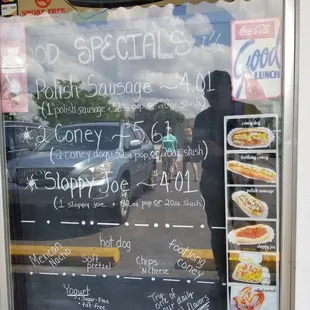 SMOKE FREE
SPECIALS
Polish Sausage ~4.01
(1 polish sausage + 32oz pop or 20oz slush)
Coca-Cola
Good
LUNCH
* 2 Coney ~ 5.61
(2 coney dogs 32oz pop or 20oz slush)
coney dog
footlong coney
* Sloppy Joe ~ 4.01
(1 sloppy joe + 32oz pop or 20oz slush)
polish sausage
sloppy joe
hot dog
Mexican
Nacho
Soft
pretzel
Chips
N cheese
Footlong
Coney
Yogurt
- Sugar-Free
- fat-free
Try
one of
our daily
flavors